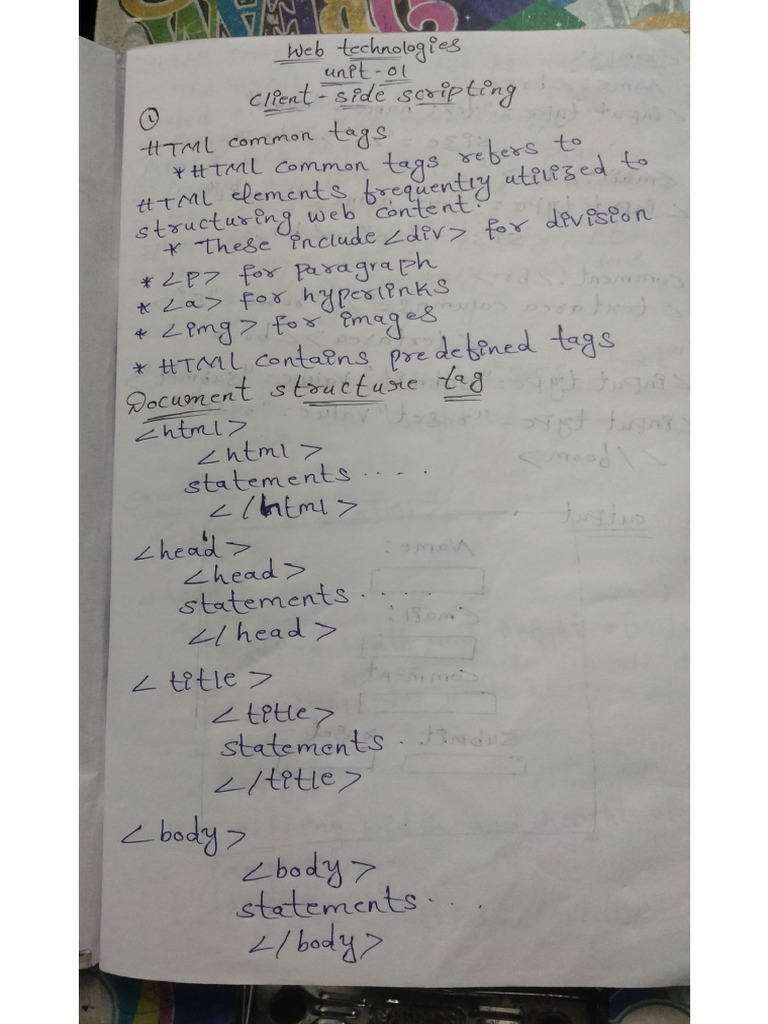 Web technologies
unit - 01
client - side scripting
①
HTML common tags
* HTML common tags refers to
HTML elements frequently utilized to
structuring web content.
* These include <div> for division
* <p> for paragraph
* <a> for hyperlinks
* <img> for images
* HTML contains predefined tags
Document structure tag
<html>
<html>
statements ....
</html>
<head>
<head>
statements .....
</head>
<title>
<title>
statements ..
</title>
<body>
<body>
statements ...
</body>